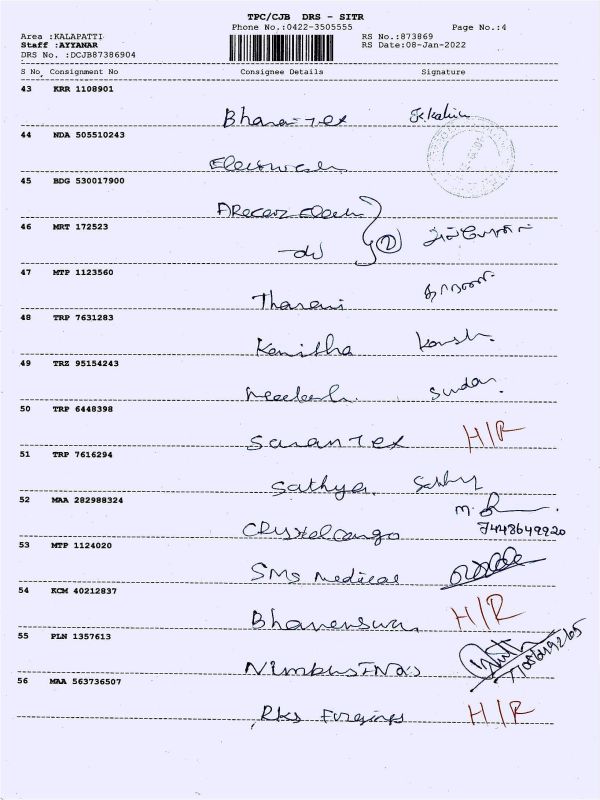 TPC/CJB DRS - SITR
Phone No.:0422-3505555 Page No.:4
Area :KALAPATTI RS No.:873869
Staff :AYYANAR RS Date:08-Jan-2022
DRS No. :DCJB87386904
S No Consignment No Consignee Details Signature
43 KRR 1108901
Bharat Tex
44 NDA 505510243
45 BDG 530017900
46 MRT 172523
-do 2
47 MTP 1123560
Tharani
48 TRP 7631283
Kanitha
49 TRZ 95154243
50 TRP 6448398
Saran Tex H/R
51 TRP 7616294
Sathya.
52 MAA 282988324
Crystal Cargo 7448649920
53 MTP 1124020
SMS Medical
54 KCM 40212837
H/R
55 PLN 1357613
56 MAA 563736507
RKS Forgings H/R